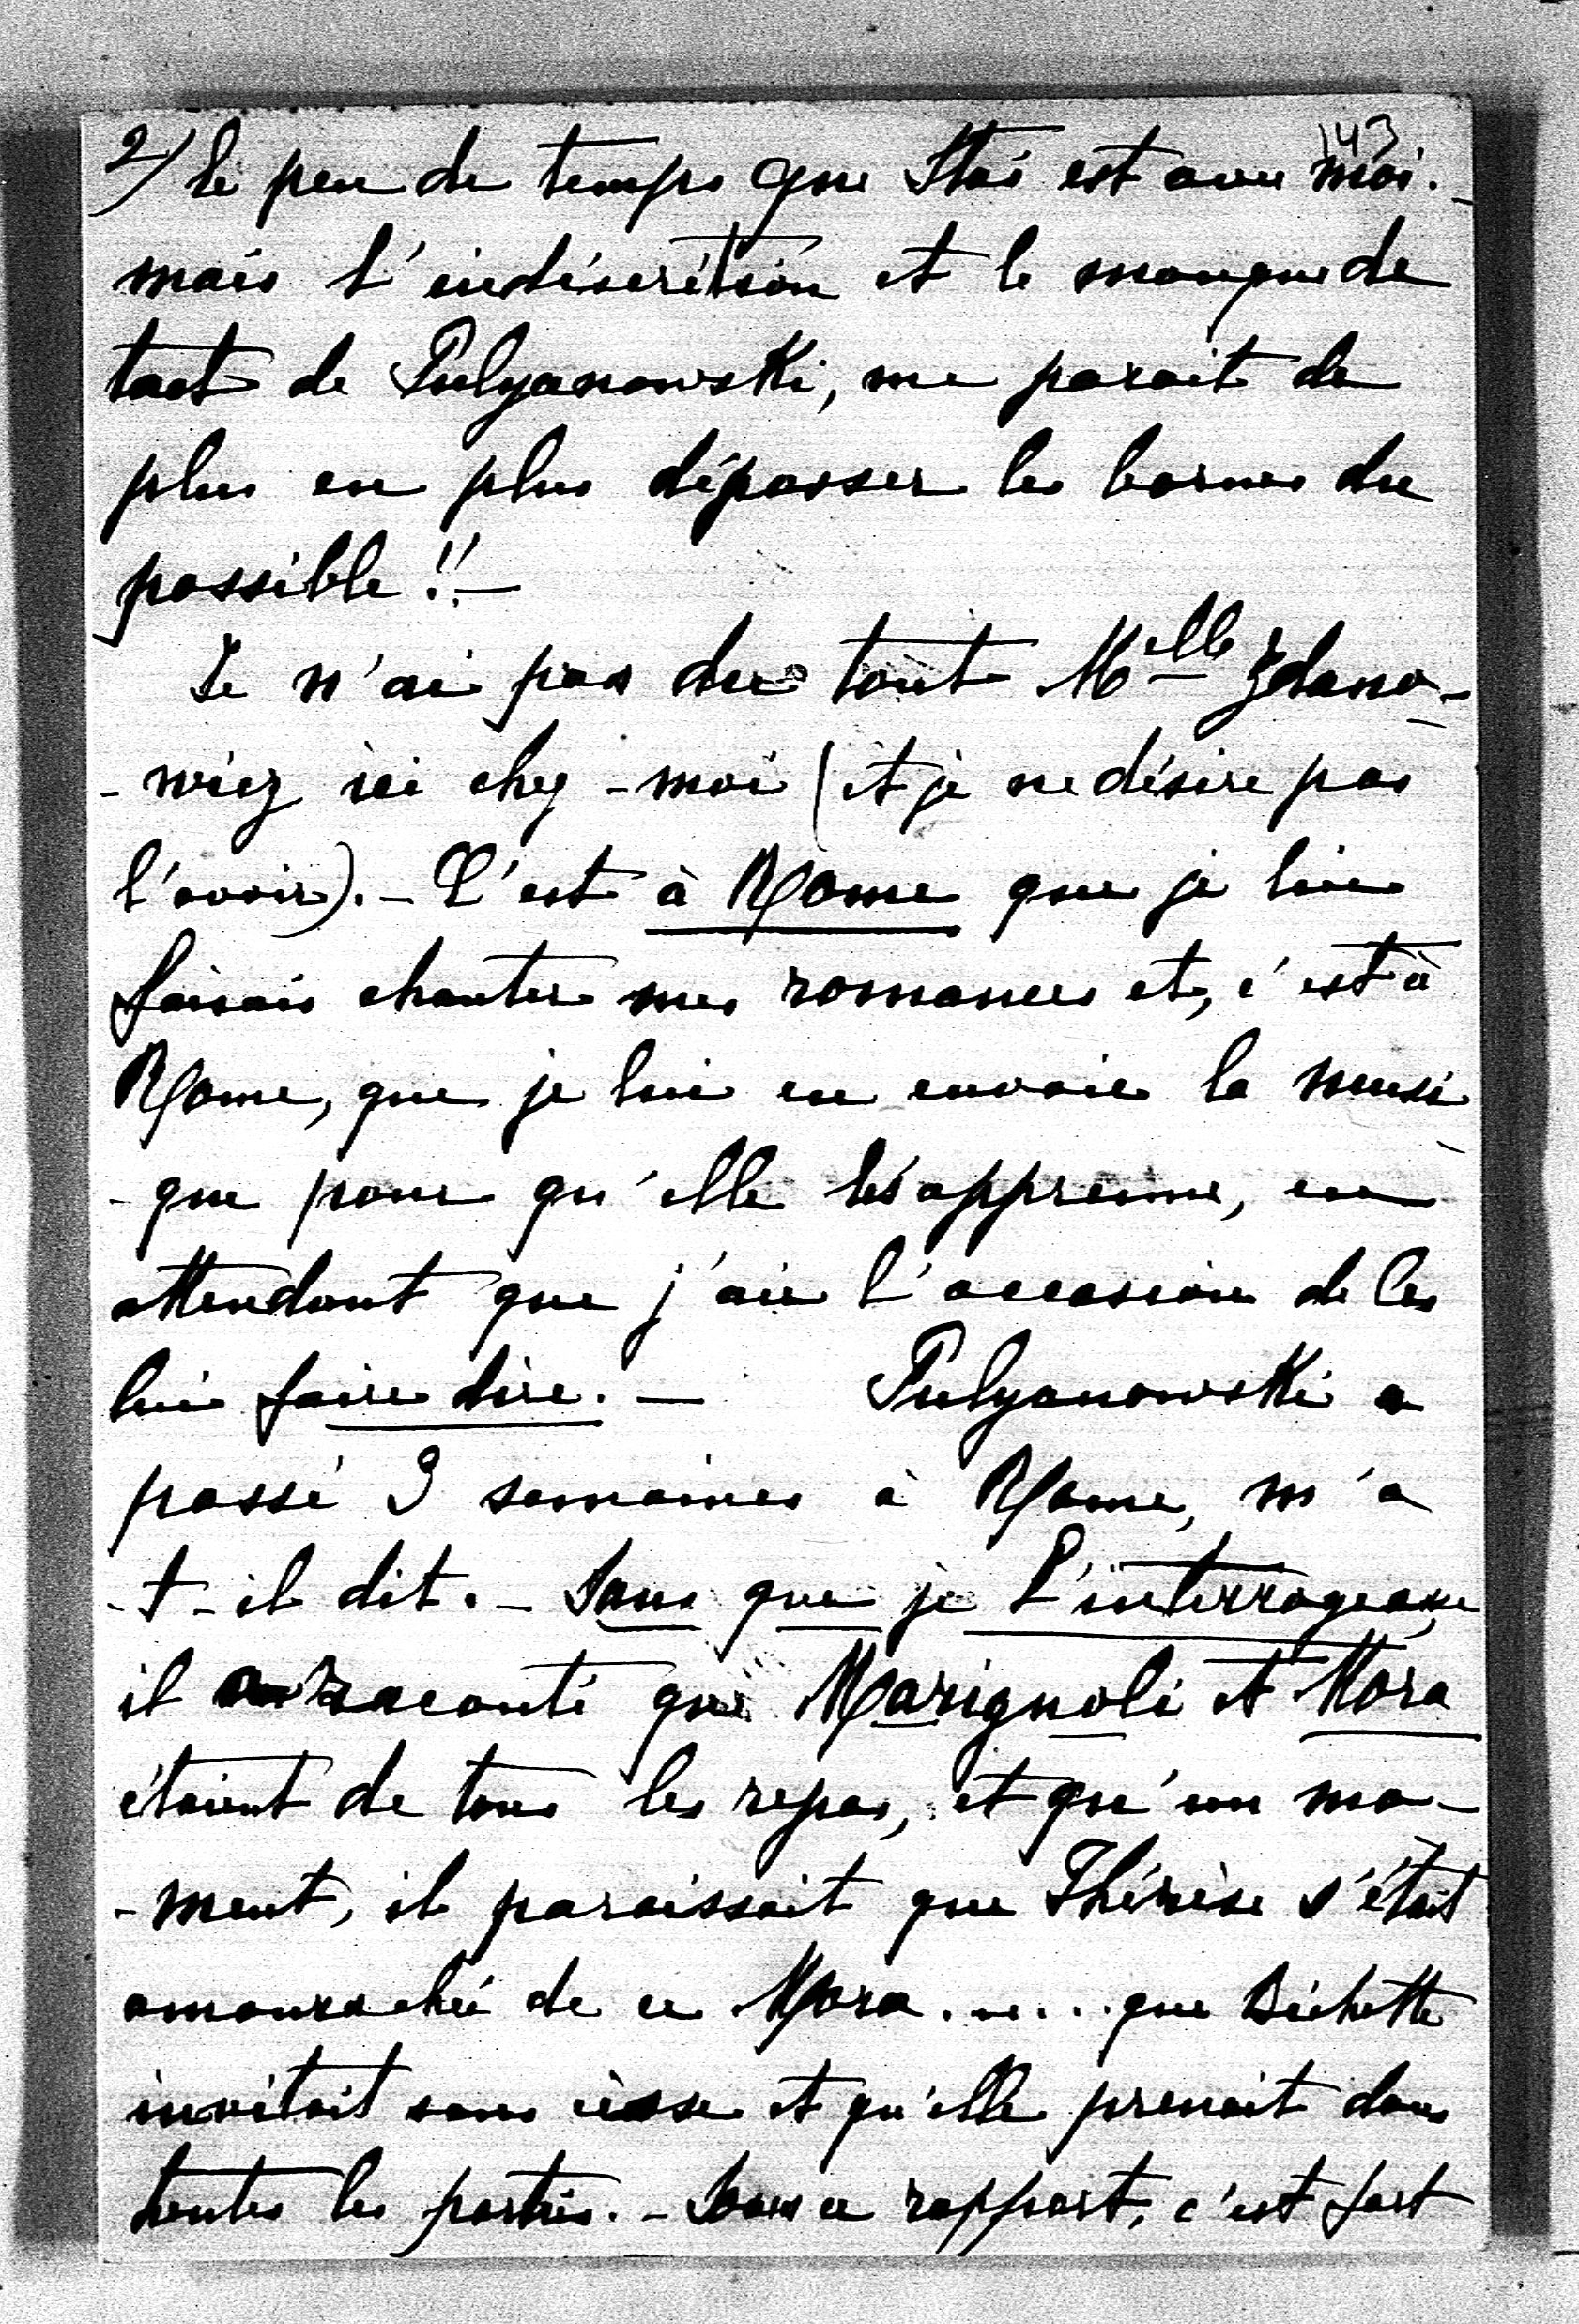 143
2) le peu de temps que Staś est avec moi. -
mais l'indiscrétion et le manque de
tact de Pulyanowski, me parait de
plus en plus dépasser les bornes du
possible!! -
Je n'ai pas du tout Mlle Zdano-
- wicz ici chez-moi (et je ne désire pas
l'avoir). - C'est à Rome que je lui
faisais chanter mes romances et, c'est à
Rome, que je lui en envoie la musi-
- que pour qu'elle les apprenne, en
attendant que j'aie l'occasion de les
lui faire dire. - Pulyanowski a
passé 3 semaines à Rome, m'a
- t - il dit. - Sans que je l'interrogeasse
il raconté que Marignoli et Mora
étaient de tous les repas, et qu'un mo-
- ment, il paraissait que Thérèse s'était
amourachée de ce Mora..... que Bichette
invitait sans cesse et qu'elle prenait dans
toutes les parties. - Sous ce rapport, c'est fort